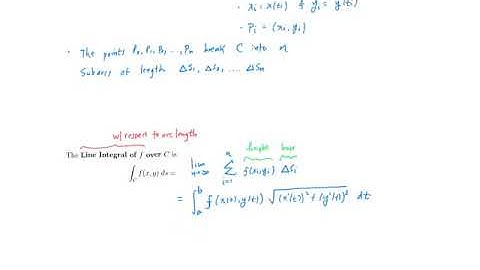 • xi = x(ti) & yi = y(ti)
• Pi = (xi, yi)
• The points P0, P1, P2, ..., Pn break C into n
Subarcs of length ΔS1, ΔS2, .... ΔSn
w/ respect to arc length
The Line Integral of f over C is
height base
∫C f(x, y) ds = lim n→∞ n Σ i=1 f(xi, yi) ΔSi
= ∫a b f(x(t), y(t)) √(x'(t))² + (y'(t))² dt